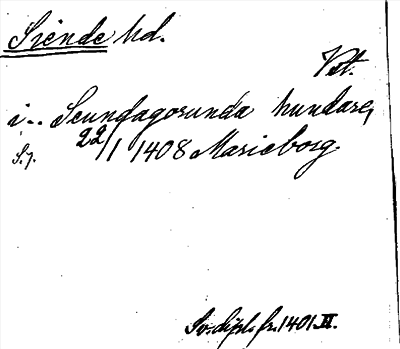 Siende hd.
Vstm.
i.. Seundagorunda hundare,
S. 7. 22/1 1408 Marieborg.
Sv. dipl. fr. 1401. II.